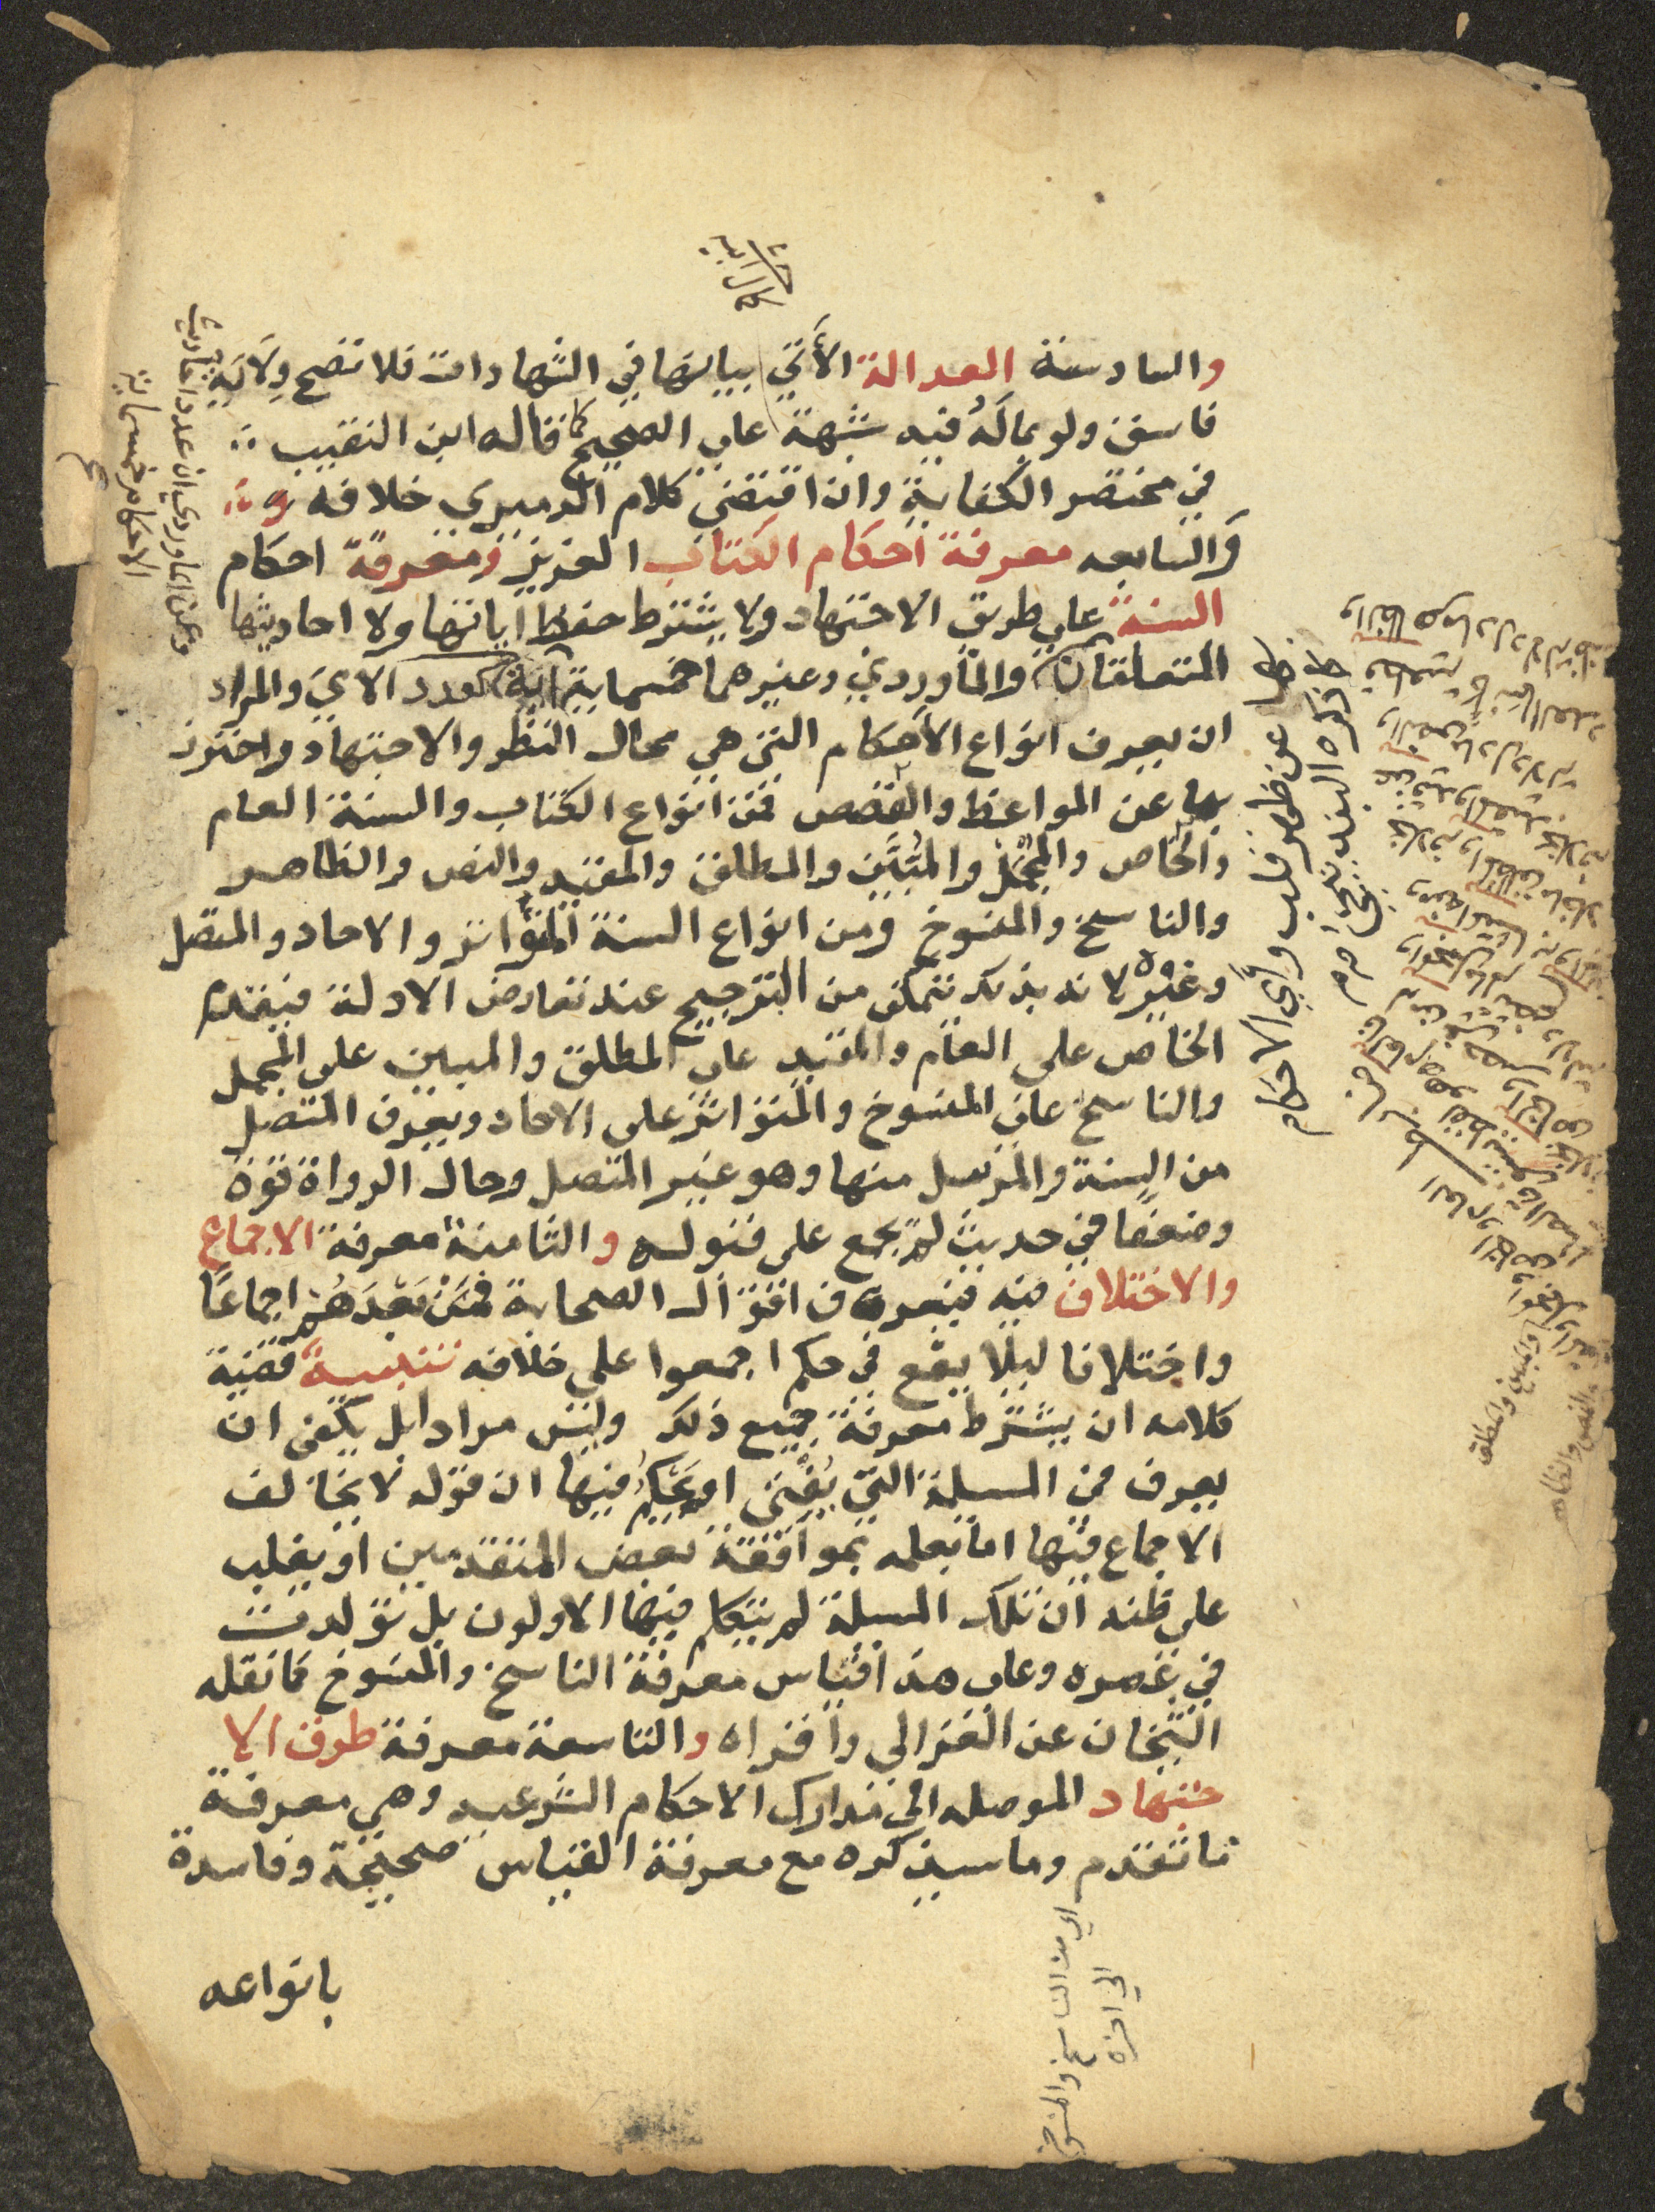 والسادسة العدالة الأتي بيانها في الشهادات فلا تصح ولاية
فاسق ولو بماله فيه شبهة علي الصحيح كما قاله ابن النقيب
في مختصر الكفاية وان اقتضي كلام الدميري خلافه
والسابعه معرفة احكام الكتاب العزيز ومعرفة احكام
السنة علي طريق الاجتهاد ولا يشترط حفظ اياتها ولا احاديثها
المتعلقات والماوردي وغيرهما خمسماية آية كعدد الاي والمراد
ان يعرف انواع الأحكام التي هي محال النظر والاجتهاد واحترز
بها عن المواعظ والقصص فمن انواع الكتاب والسنة العام
والخاص والمجمل والمبين والمطلق والمقيد والنص والظاهر
والناسخ والمنسوخ ومن انواع السنة المتواتر والاحاد والمتصل
وغيره لانه بذلك يتمكن من الترجيح عند تعارض الادلة فيقدم
الخاص على العام والمقيد على المطلق والمبين على المجمل
والناسخ على المنسوخ والمتواتر على الاحاد ويعرف المتصل
من السنة والمرسل منها وهو غير المتصل وحال الرواة قوة
وضعفا في حديث لم يجمع على قبوله والثامنة معرفة الاجماع
والاختلاف فيه فيعرف اقوال الصحابة فمن بعدهم اجماعا
واختلافا ليلا يقع في حكم اجمعوا على خلافه تنبيه قضية
كلامه ان يشترط معرفة جميع ذلك وليس مرادا بل يكفي ان
يعرف في المسيلة التي يفتي او يحكم فيها ان قوله لا يخالف
الاجماع فيها اما بعلمه بموافقة بعض المتقدمين او يغلب
على ظنه ان تلك المسيلة لم يتكلم فيها الاولون بل تولدت
في عصره وعلى هذا قياس معرفة الناسخ والمنسوخ كما نقله
الشيخان عن الغزالي واقراه والتاسعة معرفة طرق الا
جتهاد الموصله الي مدارك الاحكام الشرعيه وهي معرفة
ما تقدم وما سيذكره مع معرفة القياس صحيحة وفاسدة
بانواعه
وعن الماوردي ان عدد احاديث
الاحكام خمسماية
عن ظهر قلب واي الاحكام
كما ذكره البندنيجي
اي من الناسخ والمنسوخ
الي اخره